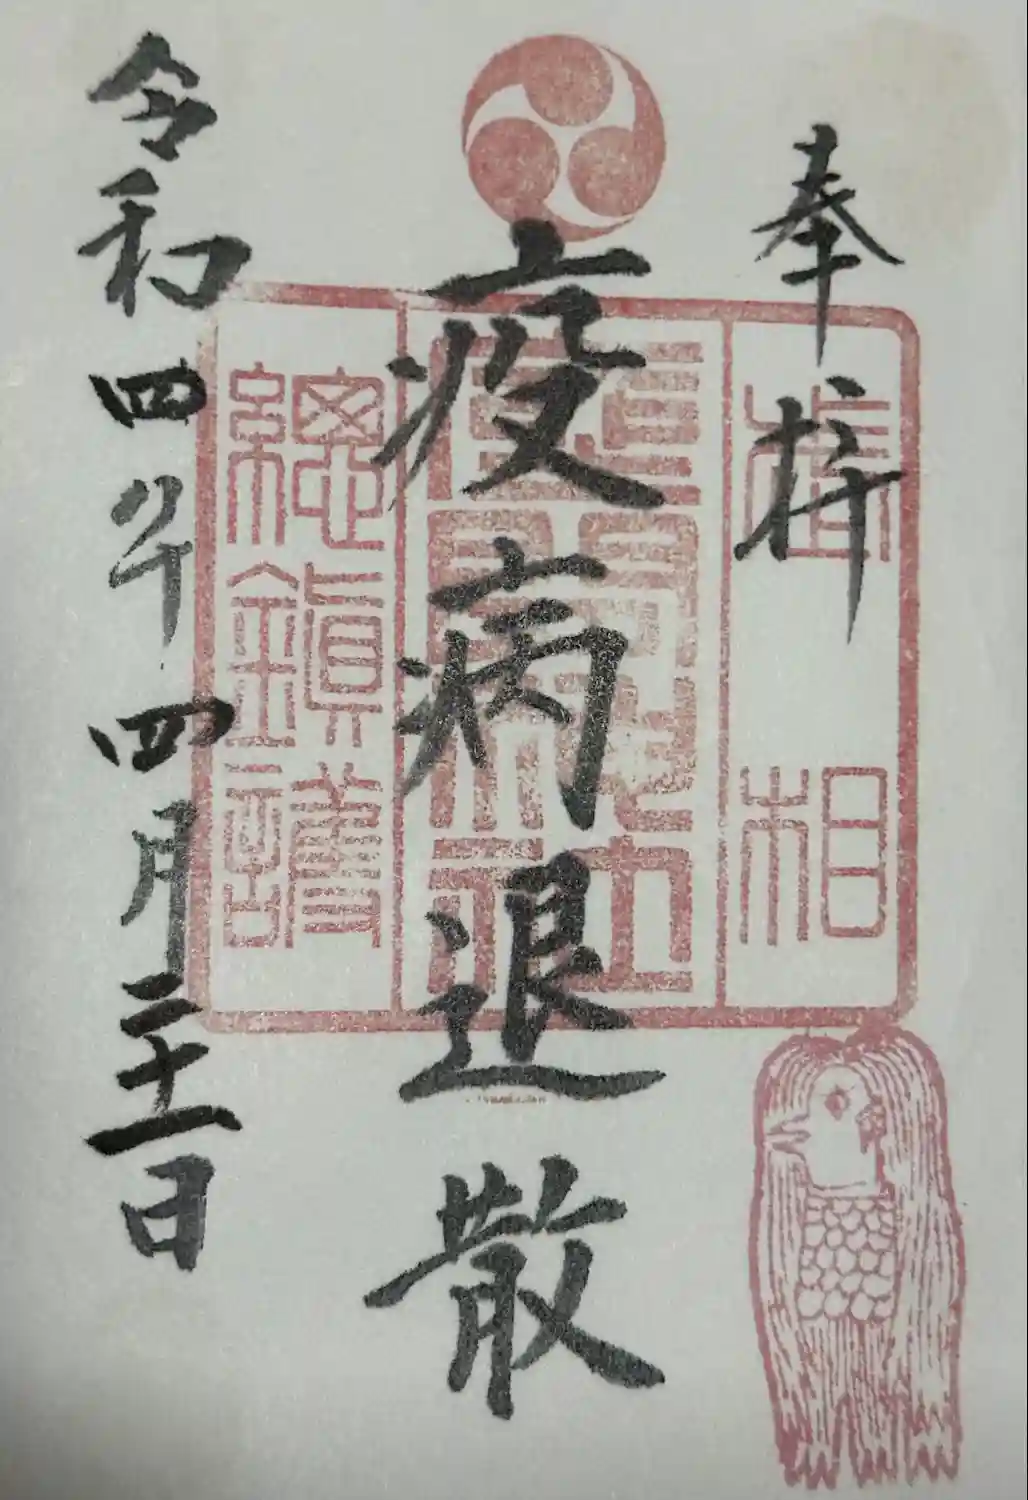 奉拝
武相
疫病退散
總鎮護
令和四年四月二十一日